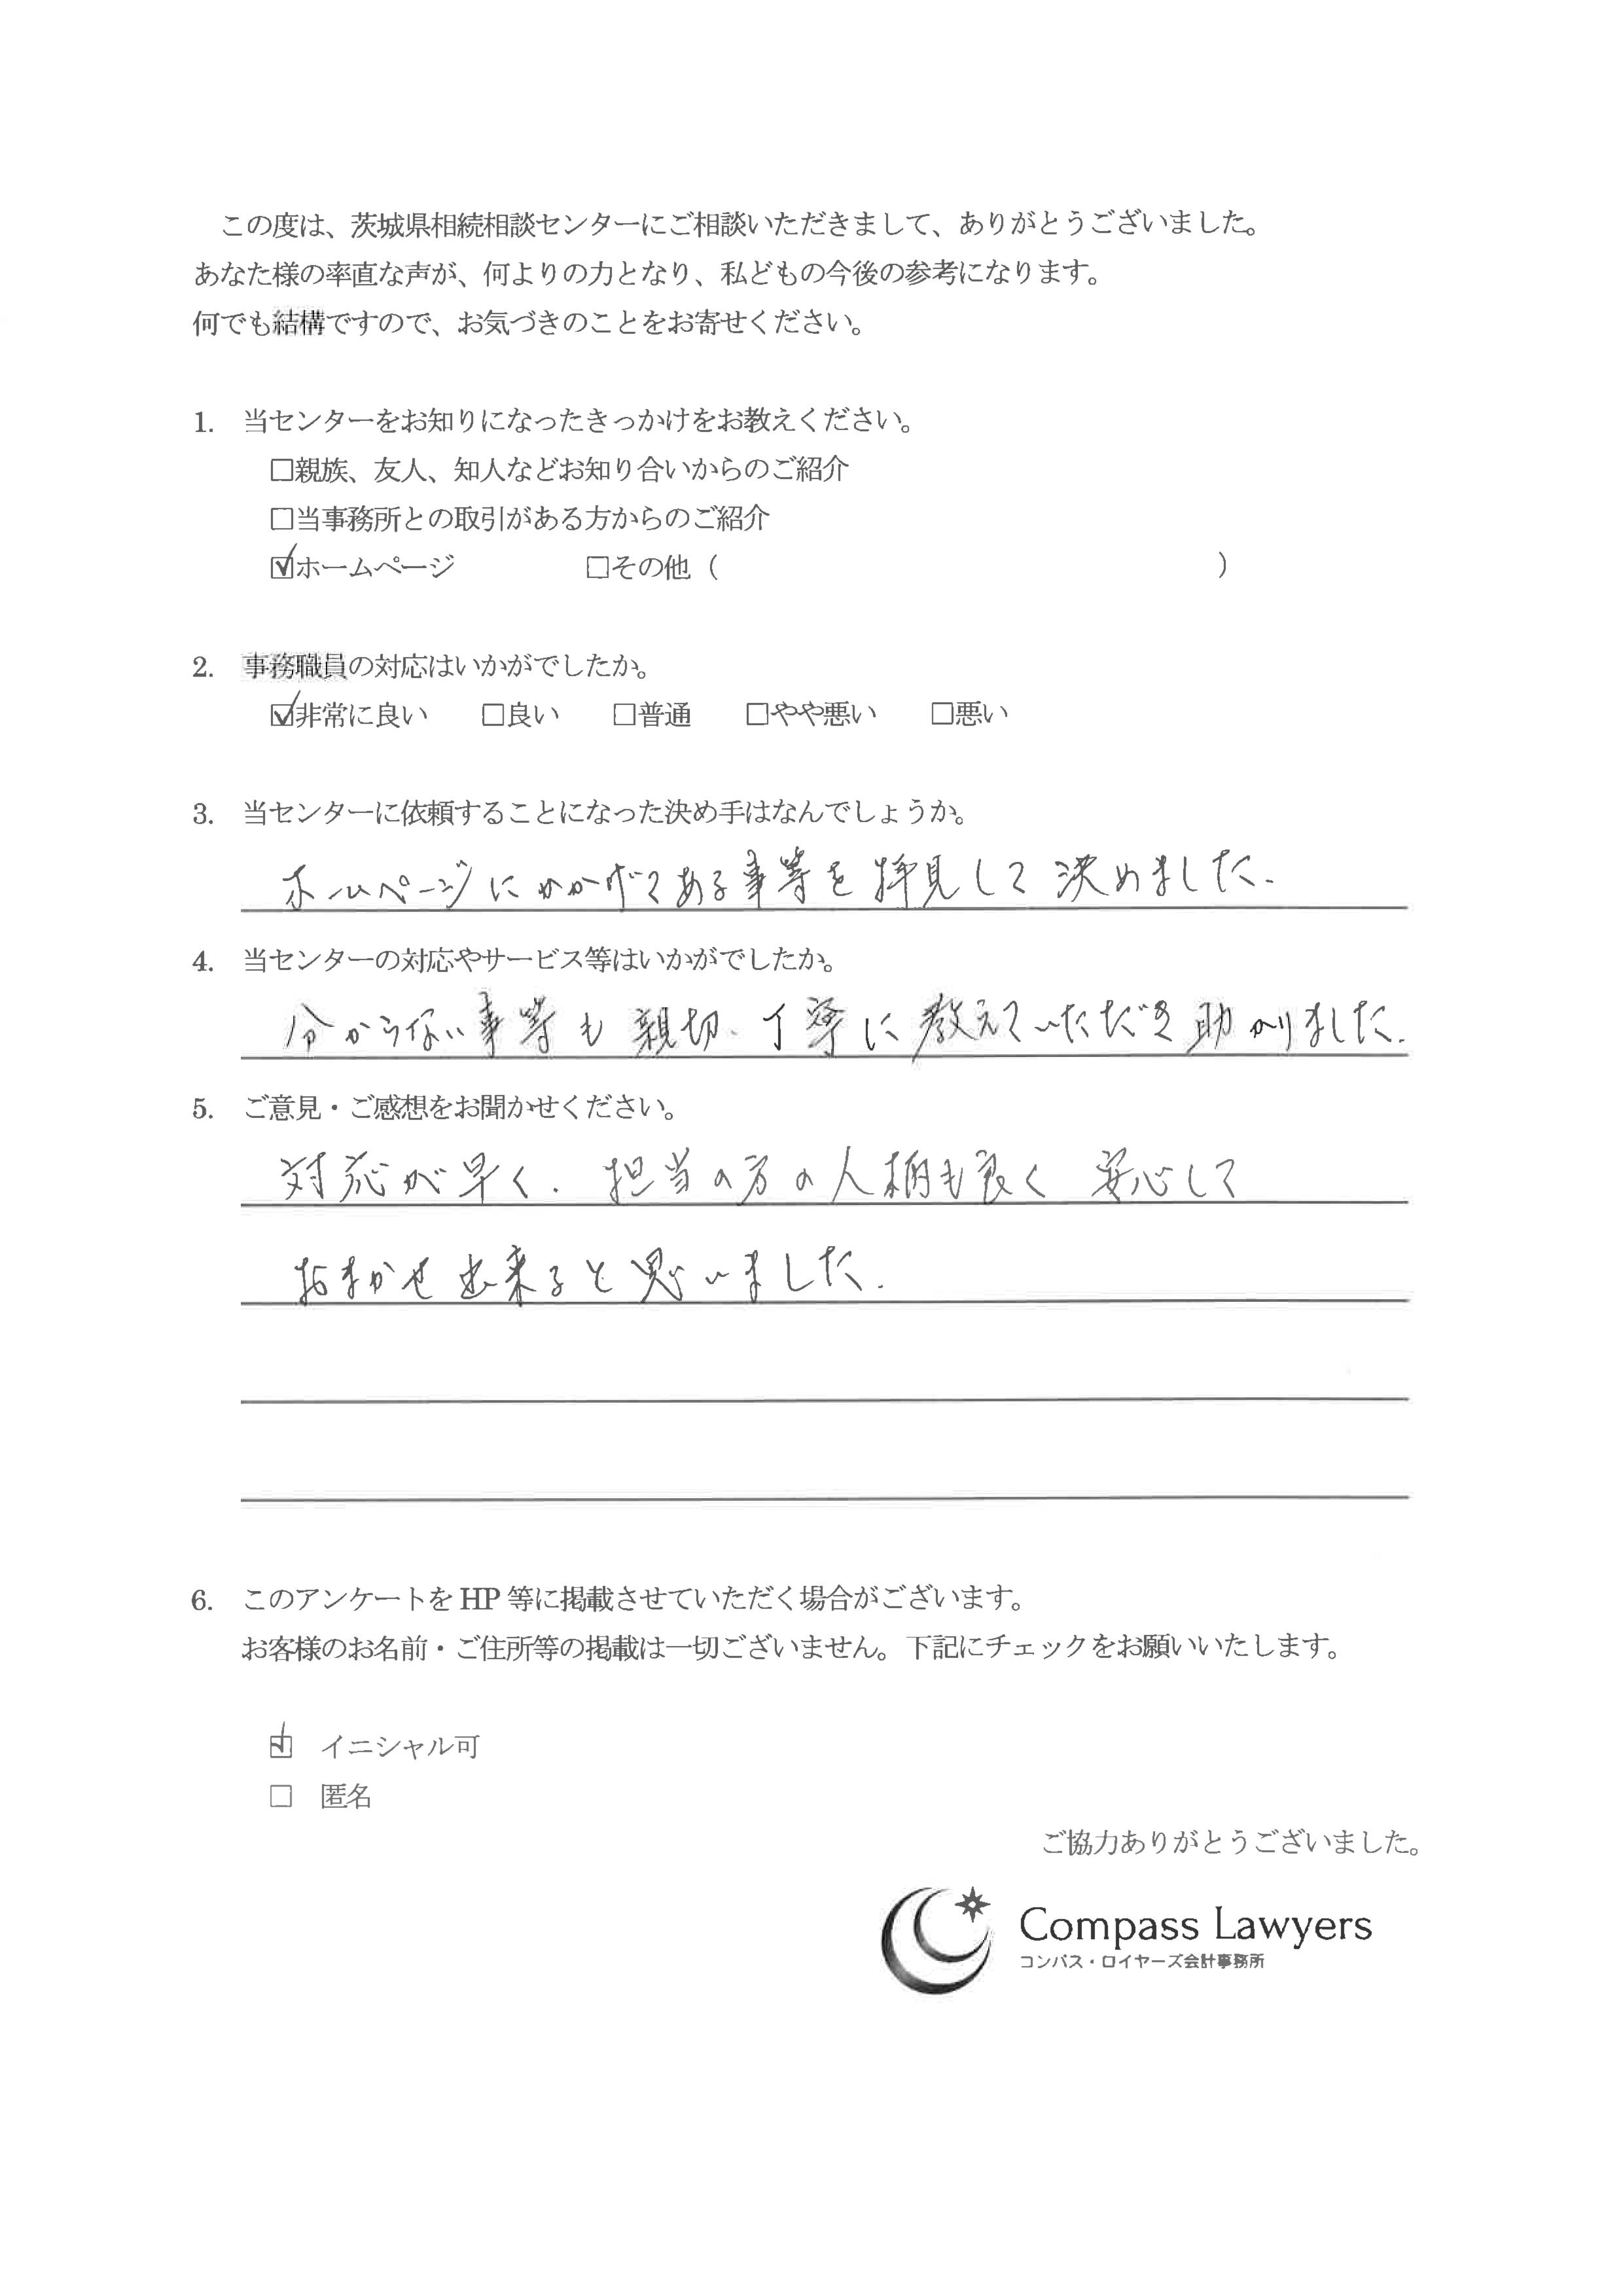 この度は、茨城県相続相談センターにご相談いただきまして、ありがとうございました。
あなた様の率直な声が、何よりの力となり、私どもの今後の参考になります。
何でも結構ですので、お気づきのことをお寄せください。
1. 当センターをお知りになったきっかけをお教えください。
□親族、友人、知人などお知り合いからのご紹介
□当事務所との取引がある方からのご紹介
☑ホームページ □その他（ ）
2. 事務職員の対応はいかがでしたか。
☑非常に良い □良い □普通 □やや悪い □悪い
3. 当センターに依頼することになった決め手はなんでしょうか。
ホームページにかかげてある事等を拝見して決めました.
4. 当センターの対応やサービス等はいかがでしたか。
分からない事等も親切、丁寧に教えていただき助かりました.
5. ご意見・ご感想をお聞かせください。
対応が早く、担当の方の人柄も良く 安心して
おまかせ出来ると思いました.
6. このアンケートを HP 等に掲載させていただく場合がございます。
お客様のお名前・ご住所等の掲載は一切ございません。下記にチェックをお願いいたします。
☑ イニシャル可
□ 匿名
ご協力ありがとうございました。
Compass Lawyers
コンパス・ロイヤーズ会計事務所